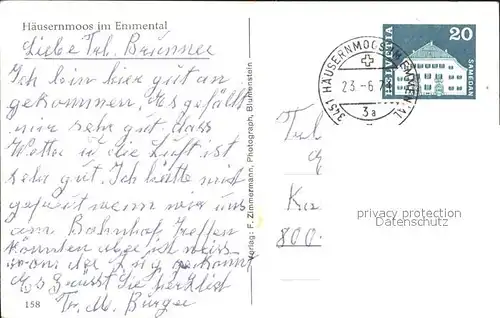 Häusernmoos im Emmental
Liebe Frl. Brunner
Ich bin hier gut an
gekommen, Es gefällt
mir sehr gut. das
Wetter u die Luft ist
sehr gut. Ich hätte mich
gefreut wenn wir uns
am Bahnhof treffen
könnten aber ich weiss
der Zug
Es grüsst Sie herzlich
Fr. M. Burger
158
Verlag: F. Zimmermann, Photograph, Blumenstein
3451 HÄUSERNMOOS IM EMMENTAL
23.-6.7
3a
HELVETIA
20
SAMEDAN
Ka
800
privacy protection
Datenschutz